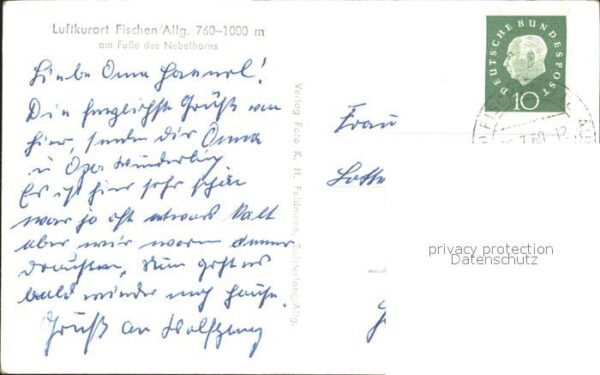 Luftkurort Fischen/Allg. 760–1000 m
am Fuße des Nebelhorns
Liebe Oma
Die herzlichste Grüße von
hier, senden dir Oma
u Opa
Es ist hier sehr schön
war ja oft etwas kalt
aber wir waren immer
draußen, Nun geht es
bald wieder nach Hause.
Gruß an Wolfgang
Verlag Foto K. H. Feldmann,
Frau
Lotte
DEUTSCHE BUNDESPOST
10
7.60.-12
privacy protection
Datenschutz